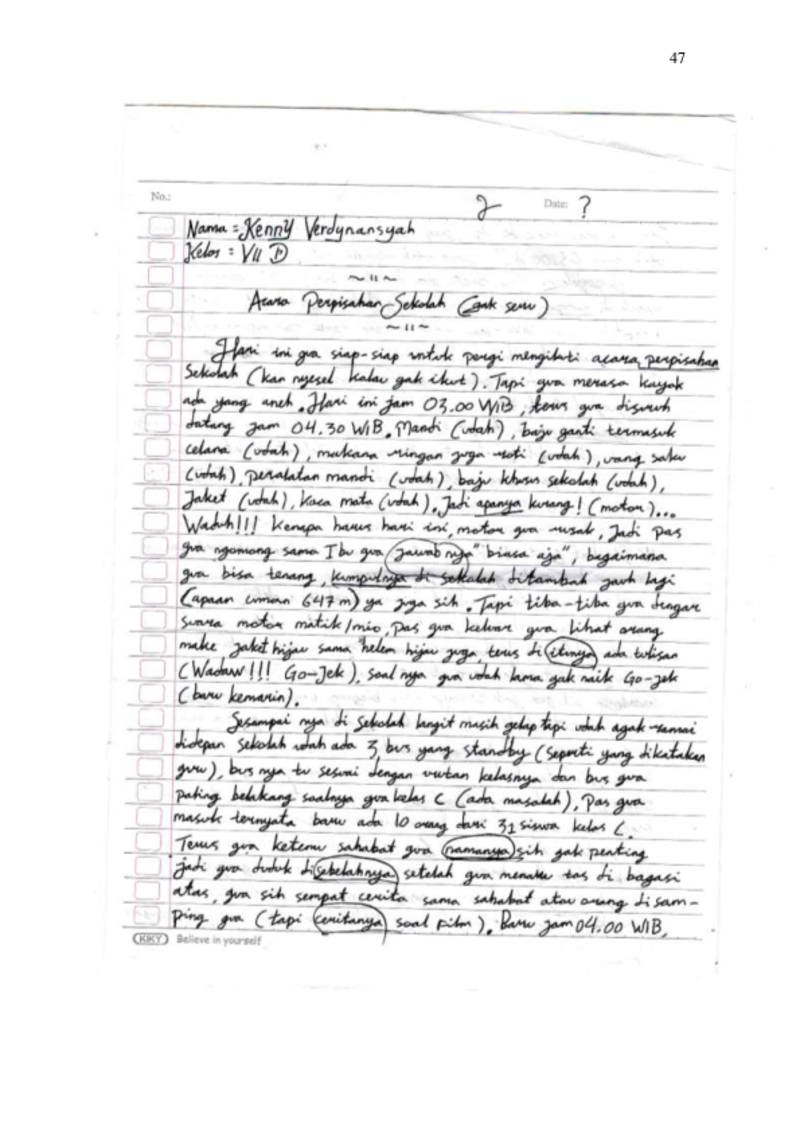 47
No.:
2
Date: ?
Nama = Kenny Verdynansyah
Kelas = VII D
~ 11 ~
Acara Perpisahan Sekolah (gak seru)
~ 11 ~
Hari ini gua siap-siap untuk pergi mengikuti acara perpisahan
Sekolah (kan nyesel kalau gak ikut). Tapi gua merasa kayak
ada yang aneh. Hari ini jam 03.00 WIB, terus gua disuruh
datang jam 04.30 WIB. Mandi (udah), baju ganti termasuk
celana (udah), makana ringan juga roti (udah), uang saku
(udah), peralatan mandi (udah), baju khusus sekolah (udah),
Jaket (udah), Kaca mata (udah). Jadi apanya kurang! (motor)...
Waduh!!! Kenapa harus hari ini, motor gua rusak, Jadi pas
gua ngomong sama Ibu gua jawab nya "biasa aja", bagaimana
gua bisa tenang, kumpulnya di sekolah ditambah jauh lagi
(apaan cuman 647 m) ya juga sih. Tapi tiba-tiba gua dengar
suara motor matik/mio, pas gua keluar gua lihat orang
make jaket hijau sama helem hijau juga, terus di itunya ada tulisan
(Wadaw!!! Go-Jek), soal nya gua udah lama gak naik Go-jek
(baru kemarin).
Sesampai nya di sekolah langit masih gelap tapi udah agak ramai
didepan sekolah udah ada 3 bus yang standby (seperti yang dikatakan
guru), bus nya tu sesuai dengan urutan kelasnya dan bus gua
paling belakang soalnya gua kelas C (ada masalah), Pas gua
masuk ternyata baru ada 10 orang dari 31 siswa kelas C.
Terus gua ketemu sahabat gua namanya sih gak penting
jadi gua duduk disebelahnya setelah gua menaru tas di bagasi
atas, gua sih sempat cerita sama sahabat atau orang disam-
ping gua (tapi ceritanya soal film). Baru jam 04.00 WIB,
KIKY Believe in yourself